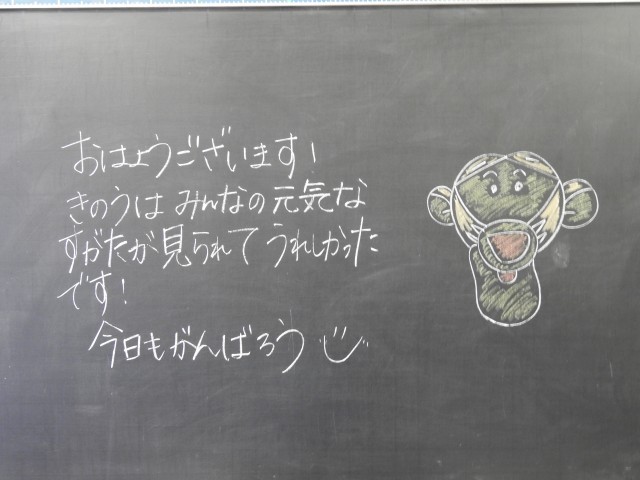 おはようございます！
きのうは みんなの元気な
すがたが見られて うれしかった
です！
今日もがんばろう